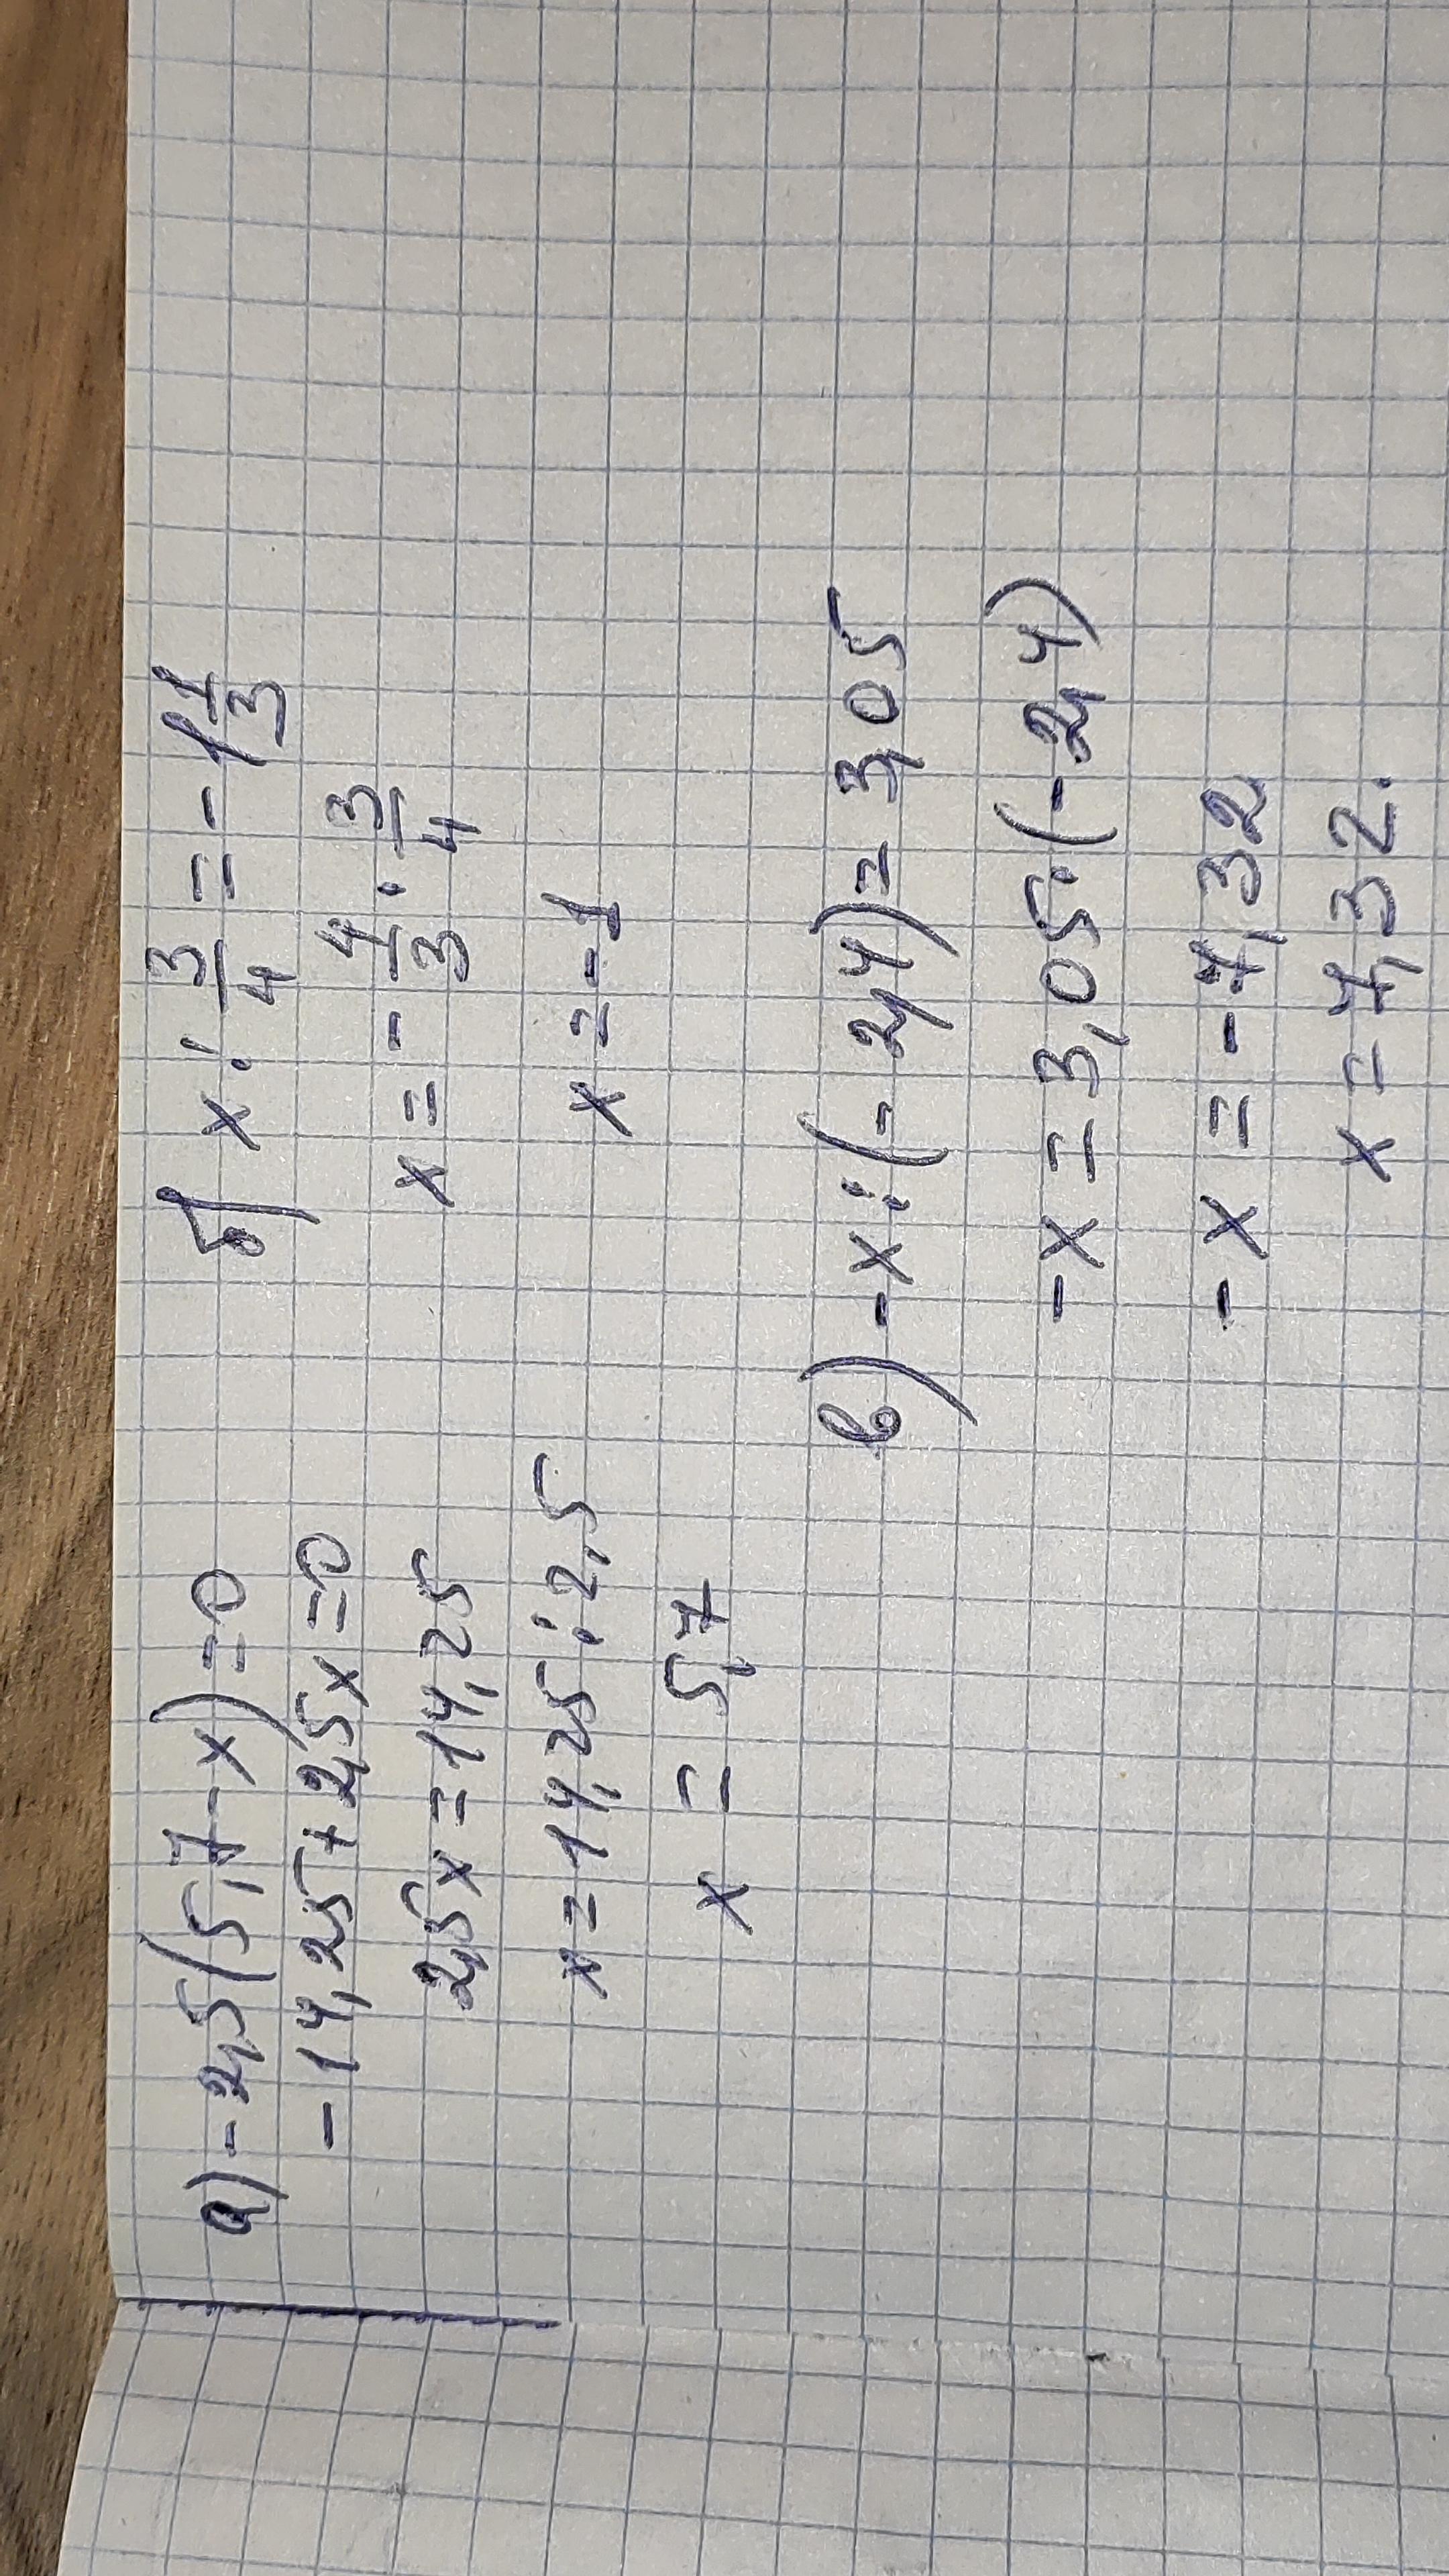 а) -2,5(5,7-x)=0
-14,25+2,5x=0
2,5x=14,25
x=14,25:2,5
x=5,7
б) x:3/4=-1 1/3
x=-4/3·3/4
x=-1
в) -x:(-2,4)=3,05
-x=3,05·(-2,4)
-x=-7,32
x=7,32.